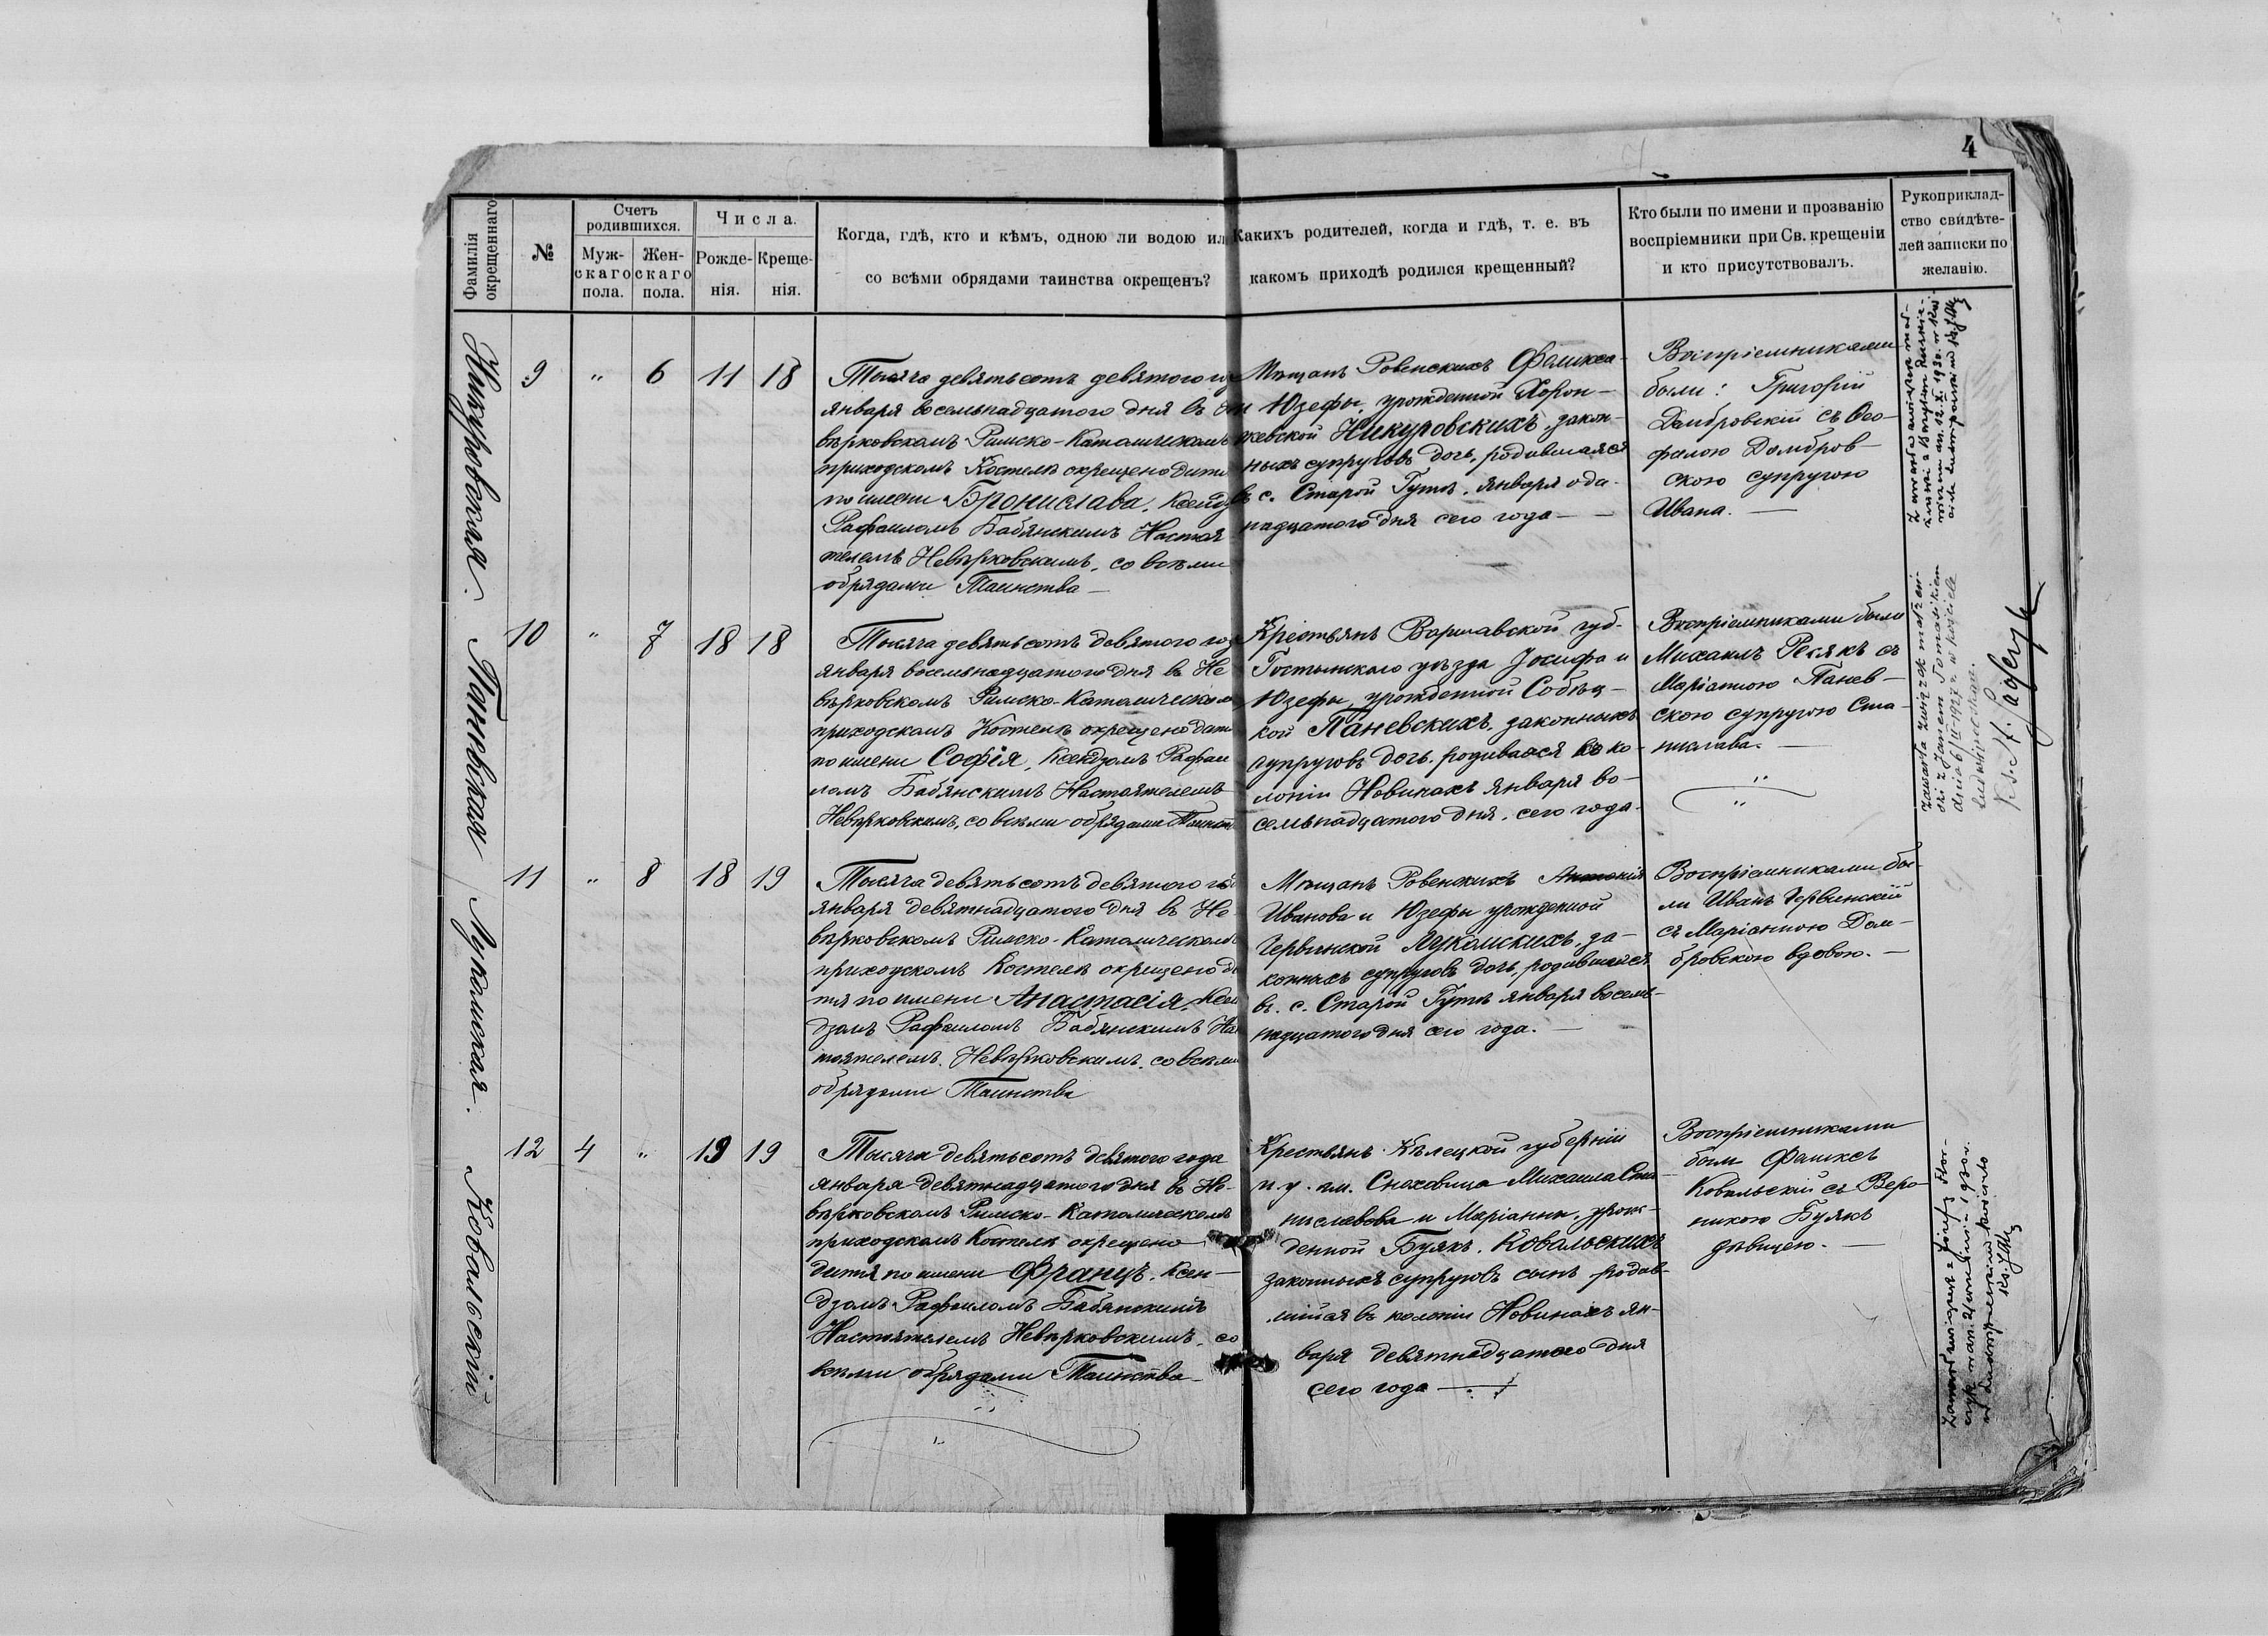 4
Фамилія
окрещеннаго
№
Счетъ
родившихся.
Муж-
скаго
пола.
Жен-
скаго
пола.
Числа.
Рожде-
нія.
Креще-
нія.
Когда, гдѣ, кто и кѣмъ, одною ли водою ил
со всѣми обрядами таинства окрещенъ?
Какихъ родителей, когда и гдѣ, т. е. въ
какомъ приходѣ родился крещенный?
Кто были по имени и прозванію
воспріемники при Св. крещеніи
и кто присутствовалъ.
Рукоприклад-
ство свидѣте-
лей записки по
желанію.
Никуровская.
9 " 6 11 18
Тысяча девятьсотъ девятого го
января восемьнадцатого дня въ
вѣрковскомъ Римско-Католическомъ
приходскомъ Костелѣ окрещено дитя
по имени Бронислава, Ксенд
Рафаиломъ Бабянскимъ Настоя
телемъ Невѣрковскимъ, со всѣми
обрядами Таинства —
Мѣщанъ Ровенскихъ Феликса
и Юзефы, урожденной Хорон-
жевской Никуровскихъ, закон-
ныхъ супруговъ дочь, родившаяся
въ с. Старой Гутѣ, января оди-
надцатого дня сего года —
Воспріемниками
были: Григорій
Домбровскій съ Ѳео-
филою Домбров-
скою супругою
Ивана. —
Паневская
10 " 7 18 18
Тысяча девятьсотъ девятого год
января восемьнадцатого дня въ Не
вѣрковскомъ Римско-Католическом
приходскомъ Костелѣ окрещено дитя
по имени Софія, Ксендзомъ Рафаи
ломъ Бабянскимъ Настоятелемъ
Невѣрковскимъ, со всѣми обрядами Таинст
Крестьянъ Варшавской губ.
Гостынскаго уѣзда Іосифа и
Юзефы, урожденной Собѣц-
кой Паневскихъ, законныхъ
супруговъ дочь, родиваяся въ ко-
лоніи Новинахъ января во-
семьнадцатого дня, сего года
Воспріемниками были
Михаилъ съ
Маріанною Панев-
скою супругою Ста-
нислава. —
zawarła związek małżeń-
ski z Janem Tomasikiem
dnia 1927 r. w kościele
Лукомская.
11 " 8 18 19
Тысяча девятьсотъ девятого го
января девятнадцатого дня въ Не
вѣрковскомъ Римско-Католическом
приходскомъ Костелѣ окрещено ди
тя по имени Анастасія, Ксен
дзомъ Рафаиломъ Бабянскимъ На
тоятелемъ Невѣрковскимъ, со всѣми
обрядами Таинства
Мѣщанъ Ровенскихъ Антонія
Иванова и Юзефы урожденной
Червинской Лукомскихъ, за-
конныхъ супруговъ дочь, родившаяся
въ с. Старой Гутѣ января восемь-
надцатого дня сего года. —
Воспріемниками бы-
ли Иванъ Червинскій
съ Маріанною Дом-
бровскою вдовою. —
Ковальскій
12 4 " 19 19
Тысяча девятьсотъ девятого года
января девятнадцатого дня въ Не-
вѣрковскомъ Римско-Католическомъ
приходскомъ Костелѣ окрещено
дитя по имени Францъ, Ксен-
дзомъ Рафаиломъ Бабянскимъ
Настоятелемъ Невѣрковскимъ, со
всѣми обрядами Таинства
Крестьянъ Кѣлецкой губерніи
и у. гм. Сноховица Михаила Ста-
ниславова и Маріанны, урож-
денной Буякъ, Ковальскихъ
законныхъ супруговъ сынъ родив-
шійся въ колоніи Новинахъ ян-
варя девятнадцатого дня
сего года —
Воспріемниками
были Феликсъ
Ковальскій съ Веро-
никою Буякъ
дѣвицею. —